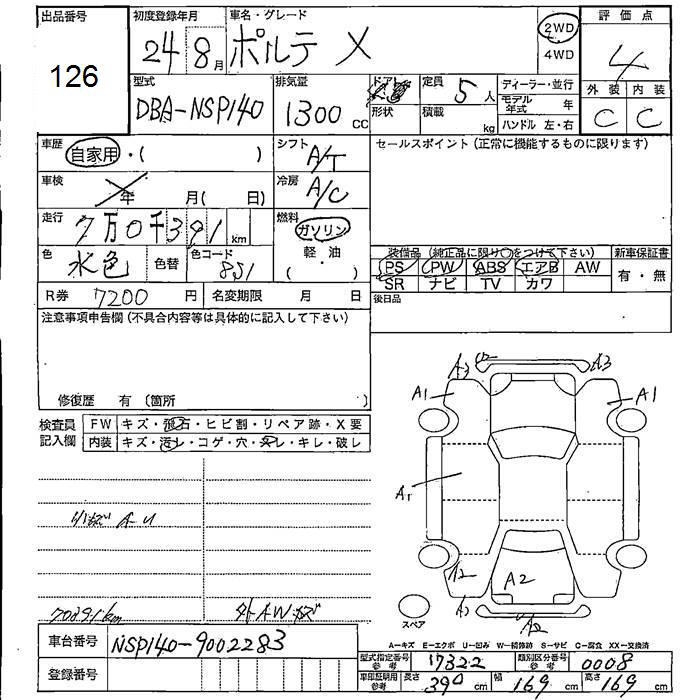 出品番号 初度登録年月 車名・グレード 評価点
126 24 8月 ポルテ X 2WD 4WD 4
型式 排気量 ドア 定員 ディーラー・並行 外装 内装
DBA-NSP140 1300cc 形状 5人 積載 kg モデル年式 年 ハンドル 左・右 C C
車歴 自家用・( ) シフト A/T セールスポイント (正常に機能するものに限ります)
車検 年 月( 日) 冷房 A/C
走行 7万0千391km 燃料 ガソリン 軽・油 ( )
色 水色 色替 色コード 851
装備品 (純正品に限り○をつけて下さい) 新車保証書
PS PW ABS エアB AW 有・無
SR ナビ TV カワ
R券 7200円 名変期限 月 日 後日品
注意事項申告欄 (不具合内容等は具体的に記入して下さい)
修復歴 有 (箇所 )
検査員記入欄 FW キズ・飛石・ヒビ割・リペア跡・X要
内装 キズ・汚レ・コゲ・穴・スレ・キレ・破レ
A3 U A3
A1 A1
A1
A2 A2
A2 A2
スペア
70391km
車台番号 NSP140-9002283
登録番号
A-キズ E-エクボ U-凹み W-補修跡 S-サビ C-腐食 XX-交換済
型式指定番号 参考 17322 類別区分番号 参考 0008
車印証明用 参考 長さ 390cm 幅 169cm 高さ 169cm